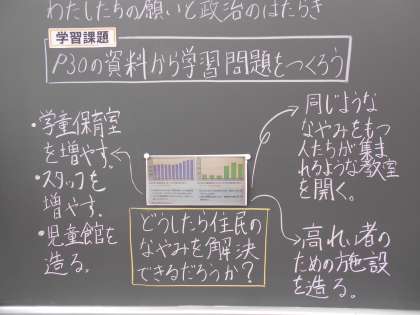 わたしたちの願いと政治のはたらき
学習課題
P30の資料から学習問題をつくろう
・学童保育室
を増やす。
・スタッフを
増やす。
・児童館を
造る。
どうしたら住民の
なやみを解決
できるだろうか?
同じような
なやみをもつ
人たちが集ま
れるような教室
を開く。
高れい者の
ための施設
を造る。